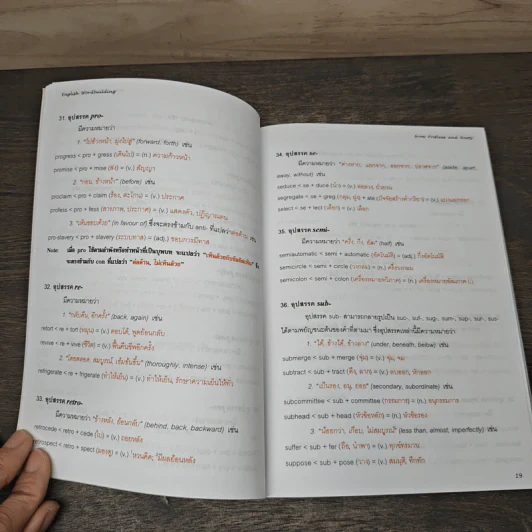 English Wordbuilding
31. อุปสรรค pro-
มีความหมายว่า
1. "ไปข้างหน้า, มุ่งไปสู่" (forward, forth) เช่น
progress < pro + gress (เดินไป) = (n.) ความก้าวหน้า
promise < pro + mise (ส่ง) = (v.) สัญญา
2. "ก่อน, ข้างหน้า" (before) เช่น
proclaim < pro + claim (ร้อง, ตะโกน) = (v.) ประกาศ
profess < pro + fess (สารภาพ, ประกาศ) = (v.) แสดงตัว, ปฏิญาณตน
3. "เห็นชอบด้วย" (in favour of) ซึ่งจะตรงข้ามกับ anti- ที่แปลว่าต่อต้าน เช่น
pro-slavery < pro + slavery (ระบบทาส) = (adj.) ชอบการมีทาส
Note: เมื่อ pro ใช้ตามลำพังหรือทำหน้าที่เป็นบุพบท จะแปลว่า "เห็นด้วยกับ
จะตรงข้ามกับ con ที่แปลว่า "คัดค้าน, ไม่เห็นด้วย"
32. อุปสรรค re-
มีความหมายว่า
1. "กลับคืน, อีกครั้ง" (back, again) เช่น
retort < re + tort (หมุน) = (v.) ตอบโต้, พูดย้อนกลับ
revive < re + vive (ชีวิต) = (v.) ฟื้นคืนชีพอีกครั้ง
2. "โดยตลอด, สมบูรณ์, เข้มข้นขึ้น" (thoroughly, intense) เช่น
refrigerate < re + frigerate (ทำให้เย็น) = (v.) ทำให้เย็น, รักษาความเย็นให้ทั่ว
33. อุปสรรค retro-
มีความหมายว่า "ข้างหลัง, ย้อนกลับ" (behind, back, backward) เช่น
retrocede < retro + cede (ไป) = (v.) ถอยหลัง
retrospect < retro + spect (มองดู) = (v.) หวนคิด,
34. อุปสรรค se-
มีความหมายว่า (aside, apart,
away, without) เช่น
seduce < se + duce (นำ) = (v.) ล่อลวง, ยั่วยวน
segregate < se + greg (กลุ่ม, ฝูง) + ate
select < se + lect (เลือก) = (v.) เลือก
35. อุปสรรค semi-
มีความหมายว่า "ครึ่ง, กึ่ง, (half) เช่น
semiautomatic < semi + automatic (อัตโนมัติ) = (adj.) กึ่งอัตโนมัติ
semicircle < semi + circle (วงกลม) = (n.) ครึ่งวงกลม
semicolon < semi + colon (เครื่องหมายทวิภาค) = (n.)
36. อุปสรรค sub-
อุปสรรค sub- สามารถกลายรูปเป็น suc-, suf-, sug-, sum-, sup-, sur-, sus-
ได้ตามพยัญชนะต้นของคำที่ตามมา ซึ่งอุปสรรคเหล่านี้มีความหมายว่า
1. "ใต้, ข้างใต้, ข้างล่าง" (under, beneath, below) เช่น
submerge < sub + merge (จุ่ม) = (v.) จุ่ม, จม
subtract < sub + tract (ดึง, ลาก) = (v.) ลบออก, หักออก
2. "เป็นรอง, อนุ, ย่อย" (secondary, subordinate) เช่น
subcommittee < sub + committee (กรรมการ) = (n.) อนุกรรมการ
subhead < sub + head (หัวข้อหลัก) = (n.) หัวข้อรอง
3. "น้อยกว่า, เกือบ, ไม่สมบูรณ์" (less than, almost, imperfectly) เช่น
suffer < sub + fer (ถือ, นำพา) = (v.) ทุกข์ทรมาน
suppose < sub + pose (วาง) = (v.) สมมุติ, นึกทึก
19